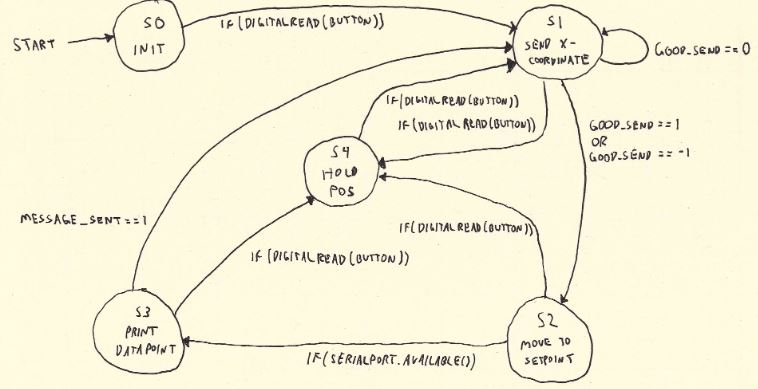 START
S0
INIT
IF(DIGITALREAD(BUTTON))
S1
SEND X-
COORDINATE
GOOD_SEND == 0
IF(DIGITALREAD(BUTTON))
IF(DIGITALREAD(BUTTON))
GOOD_SEND == 1
OR
GOOD_SEND == -1
S4
HOLD
POS
MESSAGE_SENT==1
IF(DIGITALREAD(BUTTON))
IF(DIGITALREAD(BUTTON))
S3
PRINT
DATAPOINT
S2
MOVE TO
SETPOINT
IF(SERIALPORT.AVAILABLE())